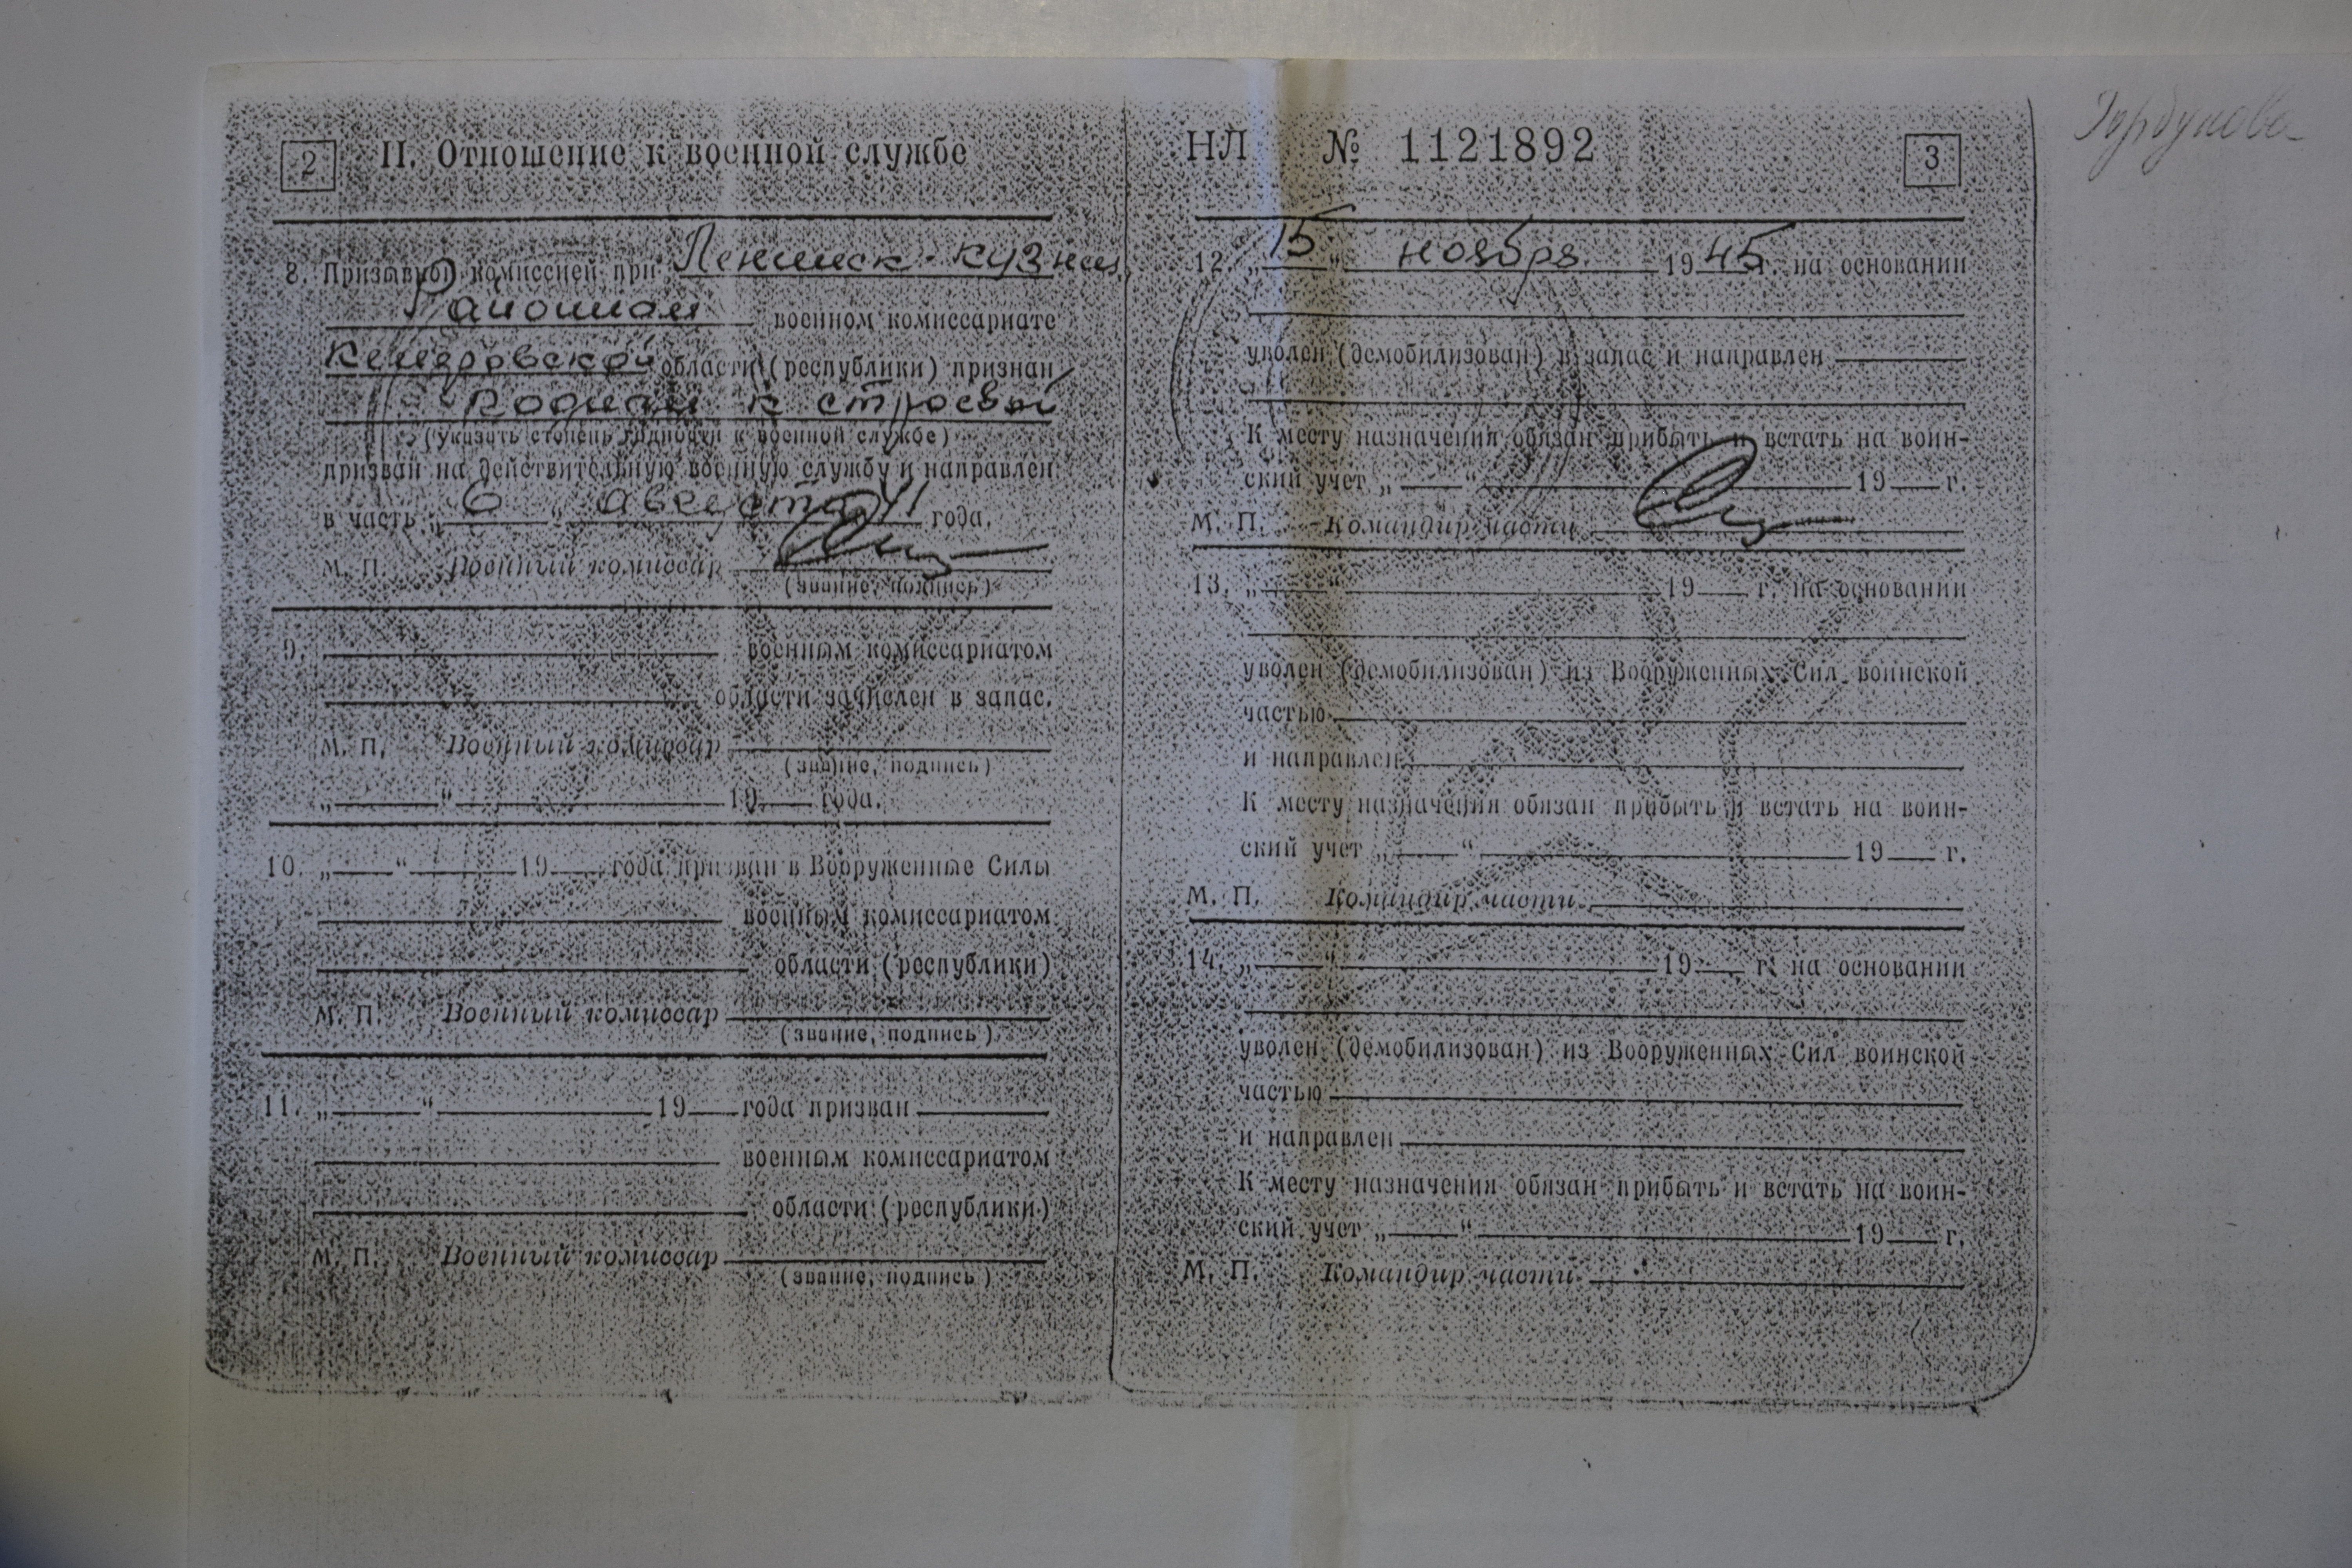 2
II. Отношение к военной службе
8. Призывной комиссией при Ленинск-кузнец
Районном военном комиссариате
Кемеровской области (республики) признан
годным к строевой
(указать степень годности к военной службе)
призван на действительную военную службу и направлен
в часть „6“ августа 41 года.
М. П. Военный комиссар
(звание, подпись)
9. военным комиссариатом
области зачислен в запас.
М. П. Военный комиссар
(звание, подпись)
„ “ 19 года.
10. „ “ 19 года призван в Вооруженные Силы
военным комиссариатом
области (республики)
М. П. Военный комиссар
(звание, подпись)
11. „ “ 19 года призван
военным комиссариатом
области (республики)
М. П. Военный комиссар
(звание, подпись)
НЛ № 1121892
3
12. „15“ ноября 1945 г. на основании
уволен (демобилизован) в запас и направлен
К месту назначения обязан прибыть и встать на воин-
ский учет „ “ 19 г.
М. П. Командир части
13. „ “ 19 г. на основании
уволен (демобилизован) из Вооруженных Сил воинской
частью
и направлен
К месту назначения обязан прибыть и встать на воин-
ский учет „ “ 19 г.
М. П. Командир части
14. „ “ 19 г. на основании
уволен (демобилизован) из Вооруженных Сил воинской
частью
и направлен
К месту назначения обязан прибыть и встать на воин-
ский учет „ “ 19 г.
М. П. Командир части